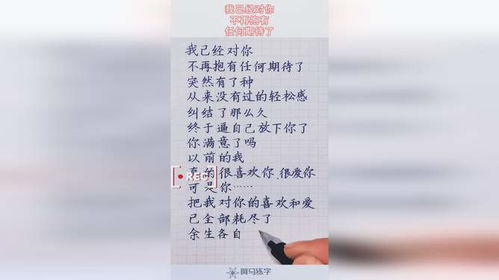 我已经对你
不再抱有
任何期待了
我已经对你
不再抱有任何期待了
突然有了种
从来没有过的轻松感
纠结了那么久
终于逼自己放下你了
你满意了吗
以前的我
真的很喜欢你,很爱你
REC
可是你……
把我对你的喜欢和爱
已全部耗尽了
余生各自
練字